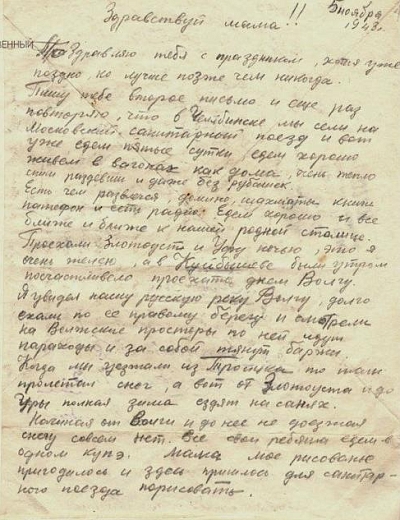 Здравствуй мама!!
5 ноября
1943г.
ВЕННЫЙ
Поздравляю тебя с праздником, хотя уже
поздно, но лучше позже чем никогда.
Пишу тебе второе письмо и еще раз
повторяю, что в Челябинске мы сели на
Московский санитарный поезд и вот
уже едем пятые сутки, едем хорошо
живем в вагонах как дома, очень тепло
спим раздевши и даже без рубашек.
Есть чем развлечся, домино, шахматы книги
патефон и есть радио. Едем хорошо и все
ближе и ближе к нашей родной столице.
Проехали Златоуст и Уфу ночью, это я
очень жалею, а в Куйбышеве были утром
посчастливело проехать днем Волгу.
Я увидал нашу русскую реку Волгу, долго
ехали по ее правому берегу и смотрели
на Волжские просторы по ней идут
параходы и за собой тянут баржи.
Когда мы уезжали из Троицка то там
пролетал снег, а вот от Златоуста и до
Уфы полная зима ездят на санях.
Начиная от Волги и до нее не доезжая
снегу совсем нет. Все свои ребята едем в
одном купэ. Мама мое рисованье
пригодилось и здесь пришлось для санитар-
ного поезда порисовать.